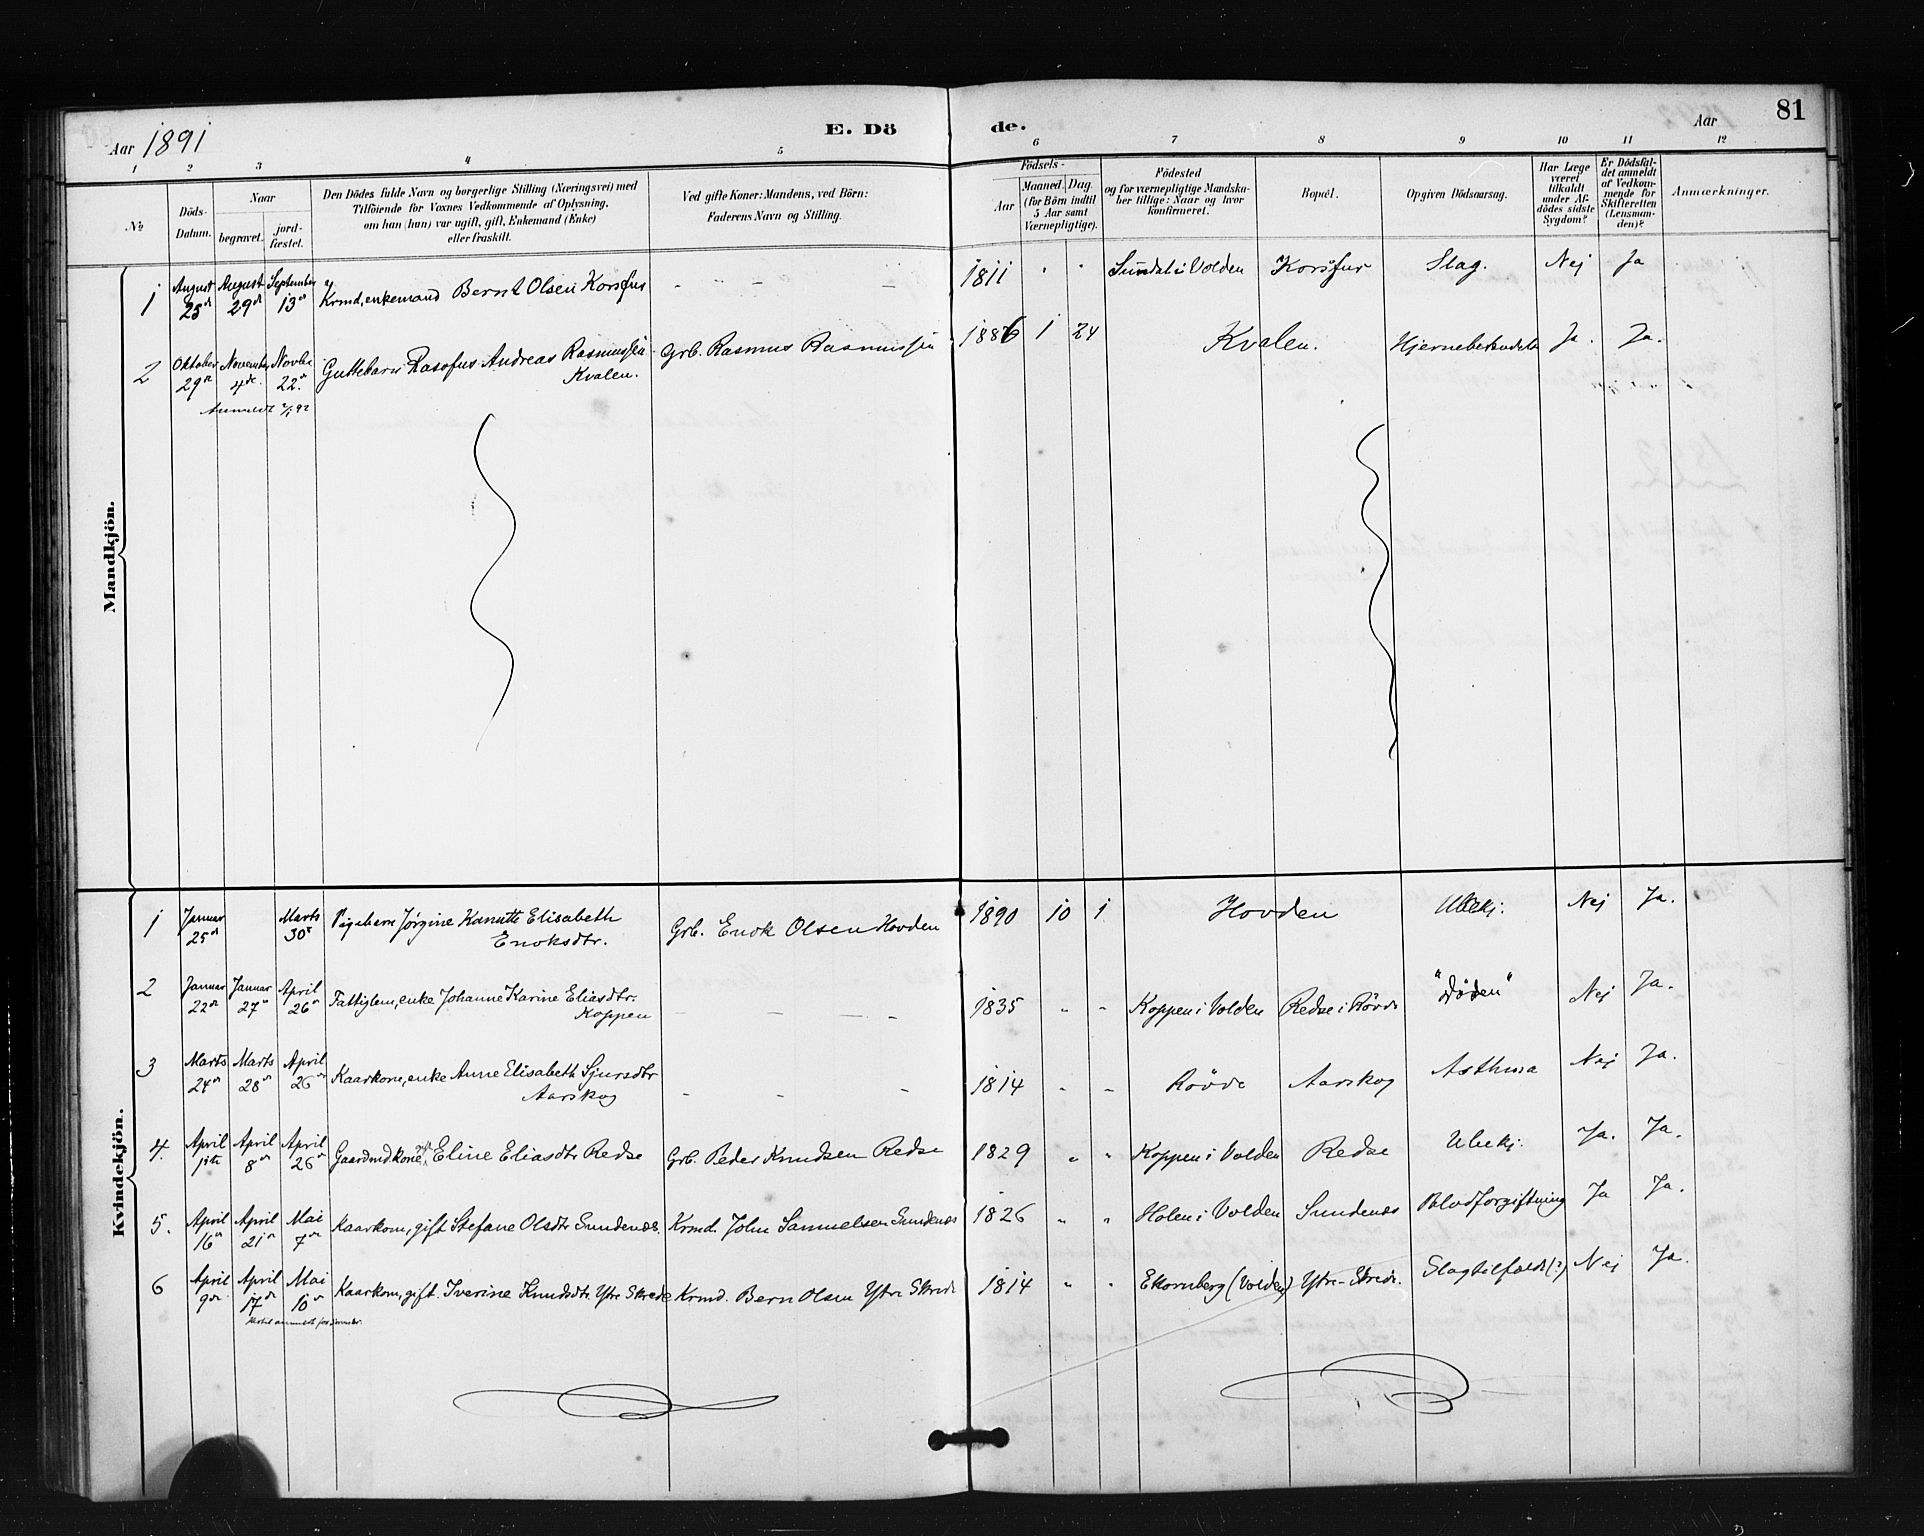 Aar 1891
E. Dö
de.
Aar
81
1 2 3 4 5 6 7 8 9 10 11 12
№
Döds-
Datum.
Naar
begravet.
jord-
fæstet.
Den Dödes fulde Navn og borgerlige Stilling (Næringsvei) med
Tilföiende for Voxnes Vedkommende af Oplysning,
om han (hun) var ugift, gift, Enkemand (Enke)
eller fraskilt.
Ved gifte Koner: Mandens, ved Börn:
Faderens Navn og Stilling.
Födsels-
Aar
Maaned. Dag.
(for Börn indtil
5 Aar samt
Værnepligtige).
Födested
og for værnepligtige Mandska-
ber tillige: Naar og hvor
konfirmeret.
Bopæl.
Opgiven Dödsaarsag.
Har Læge
været
tilkaldt
under Af-
dödes sidste
Sygdom?
Er Dödsfal-
det anmeldt
af Vedkom-
mende for
Skifteretten
(Lensman-
den)?
Anmærkninger.
Mandkjön.
1 August 25de August 29de September 13de Krmd, enkemand Bernt Olsen Korsfur - - - - 1811 " " Sundal i Volden Korsfur Slag. Nej Ja
2 Oktober 29de November 4de Novbr 22de Guttebarn Rasofus Andreas Rasmussen Grb. Rasmus Rasmussen 1886 1 24 Kvalen. Hjernebetændelse Ja. Ja.
Kvalen.
Anmeldt 2/1 92
Kvindekjön.
1 Januar 25de Marts 30te Pigebarn Jørgine Kanutte Elisabeth
Enoksdtr. Grb. Enok Olsen Hovden 1890 10 1 Hovden Ubekj. Nej Ja.
2 Januar 22de Januar 27de April 26de Fattiglem, enke Johanne Karine Eliasdtr.
Koppen - - - - 1835 " " Koppen i Volden Redse i Rövde "Döden" Nej Ja.
3 Marts 24de Marts 28de April 26de Kaarkone, enke Anne Elisabeth Sjursdtr
Aarskog - - - 1814 " " Rövde Aarskog Asthma Nej Ja.
4. April 1ste April 8de April 26de Gaardmdkone gift Eline Eliasdtr Redse Grb. Peder Knudsen Redse 1829 " " Koppen i Volden Redse Ubekj. Ja. Ja.
5. April 16de April 21de Mai 7de Kaarkone, gift Stefane Olsdtr Sundenæs. Krmd. John Samuelsen Sundenæs 1826 " " Holen i Volden Sundenæs Blodforgiftning Ja Ja.
6 April 9de April 17de Mai 10de Kaarkone, gift. Iverine Knudsdtr. Ytre Skrede Krmd. Bern Olsen Ytre Skrede 1814 " " Ekornberg (Volden) Ytre-Skrede. Slagtilfælde(?) Nej Ja.